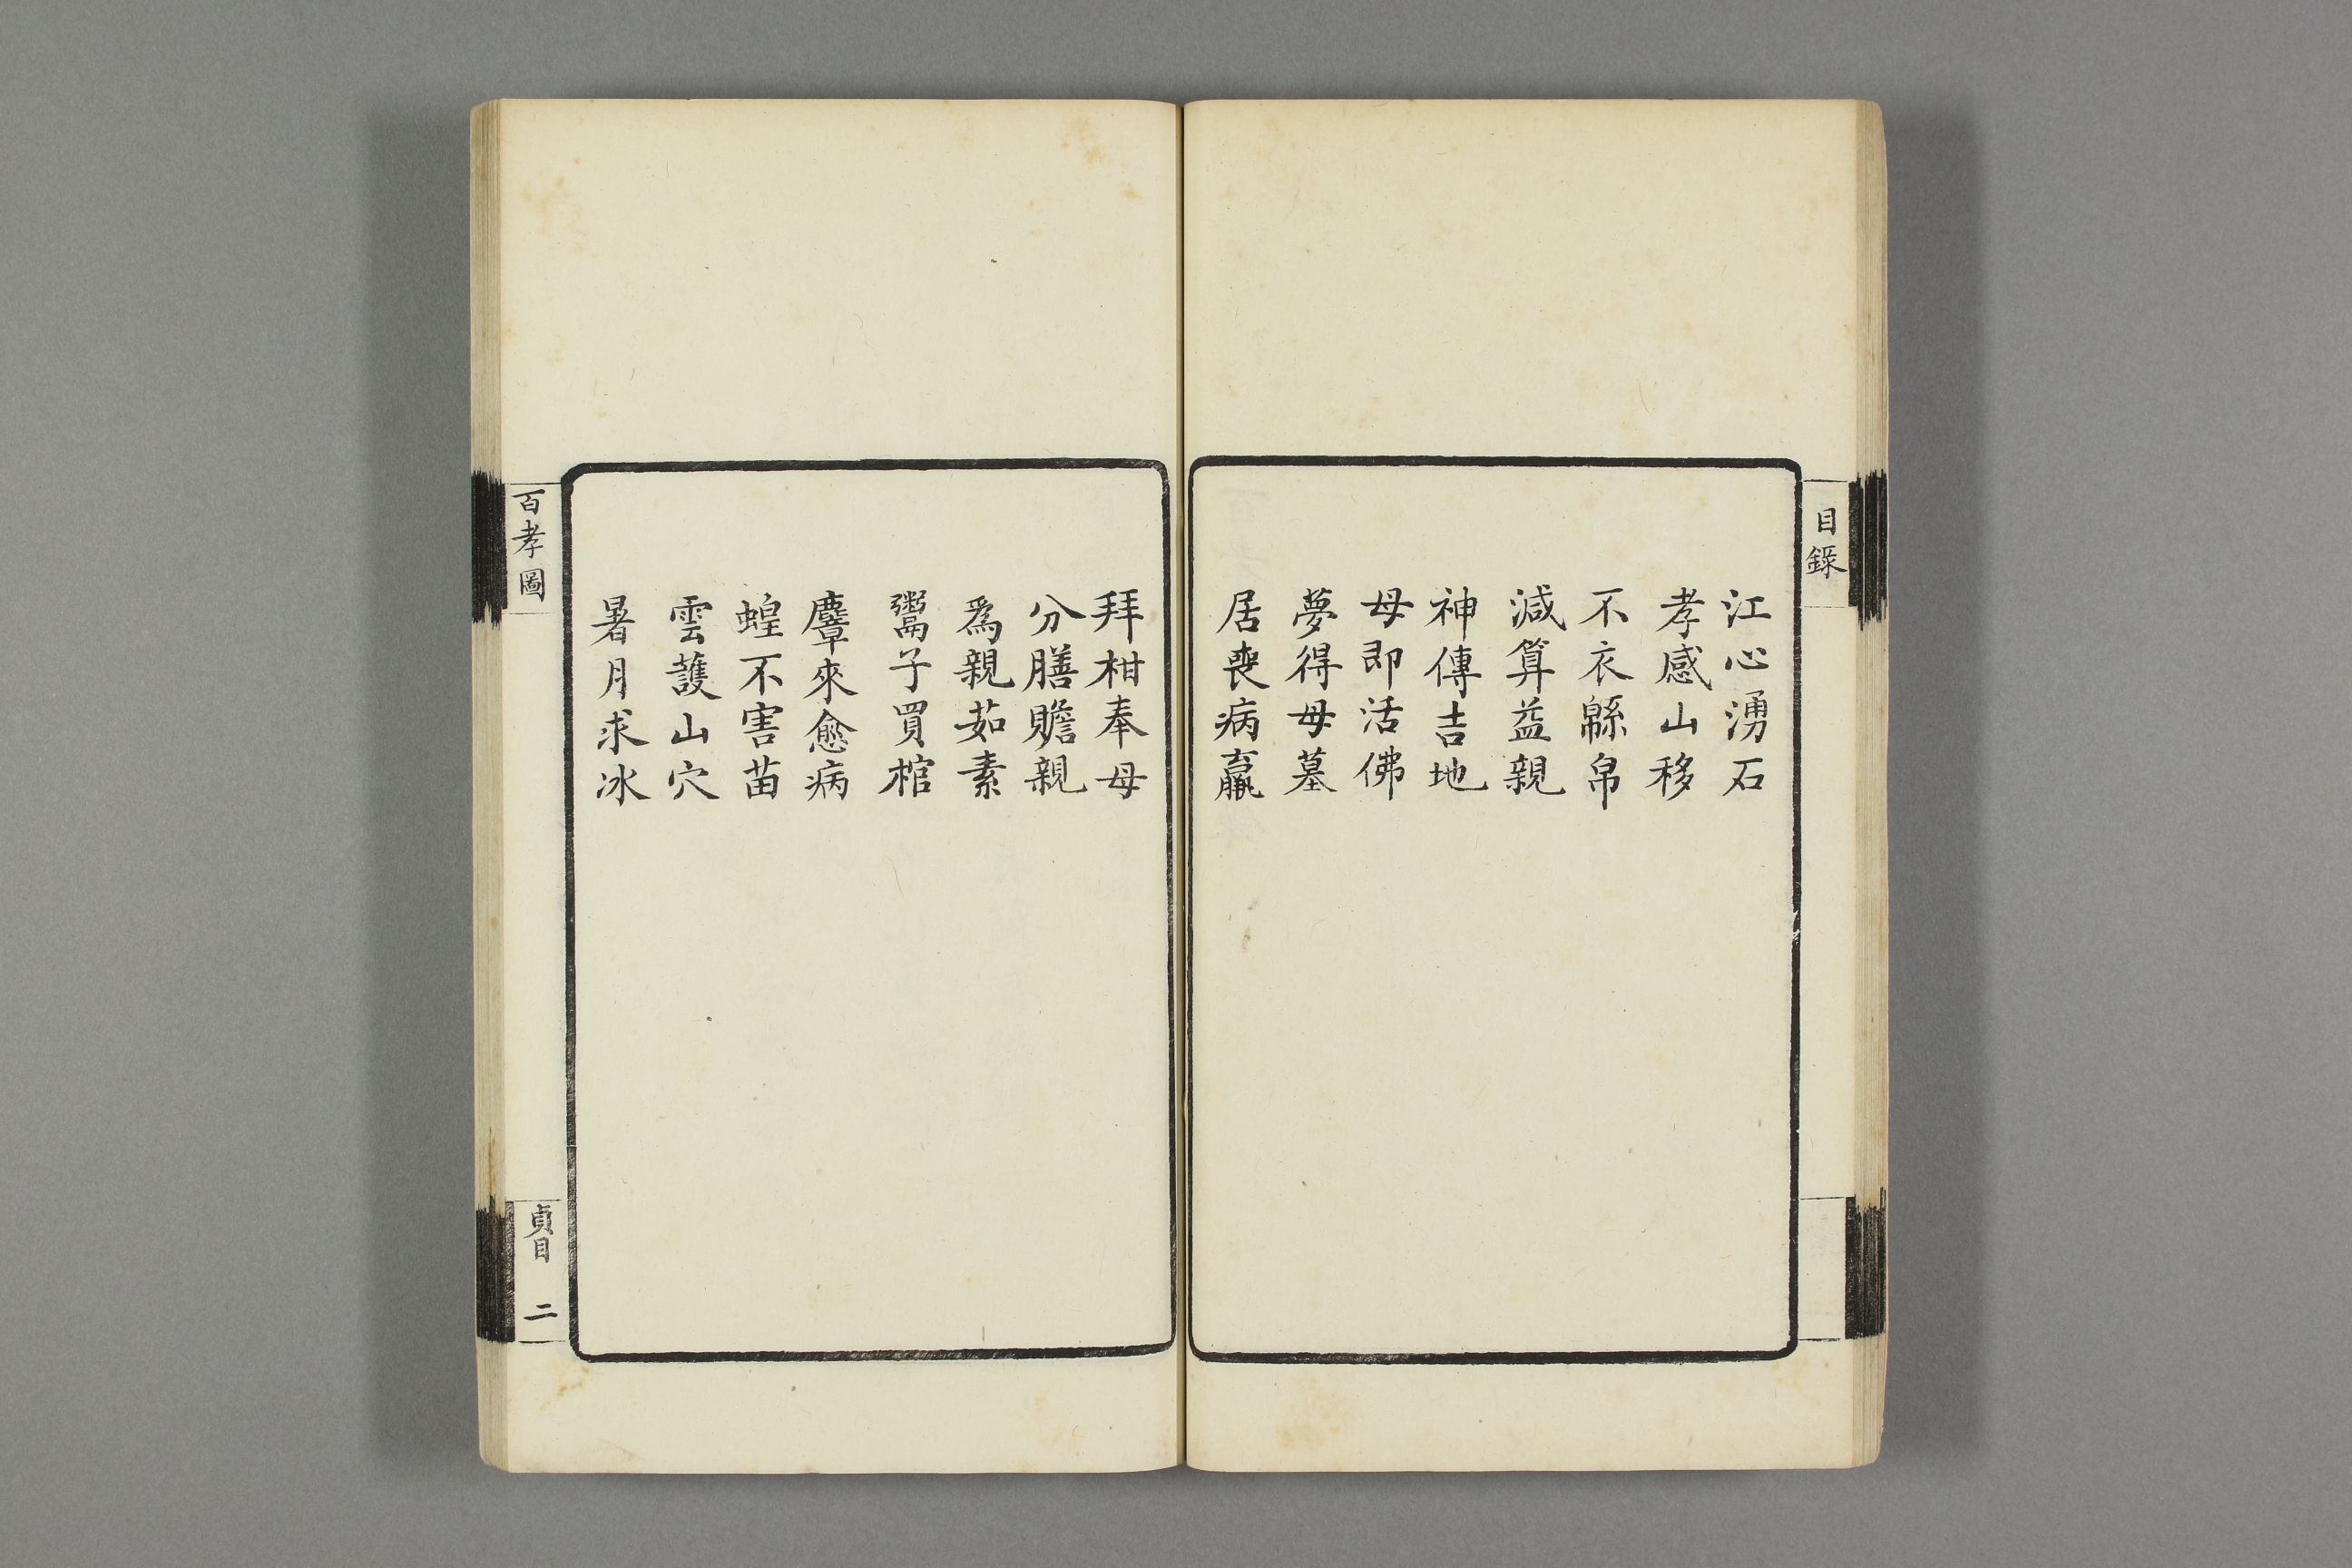 目錄
江心湧石
孝感山移
不衣緜帛
減算益親
神傳吉地
母即活佛
夢得母墓
居喪病羸
拜柑奉母
分膳贍親
爲親茹素
鬻子買棺
麞來愈病
蝗不害苗
雲護山穴
暑月求冰
百孝圖
貞目
二